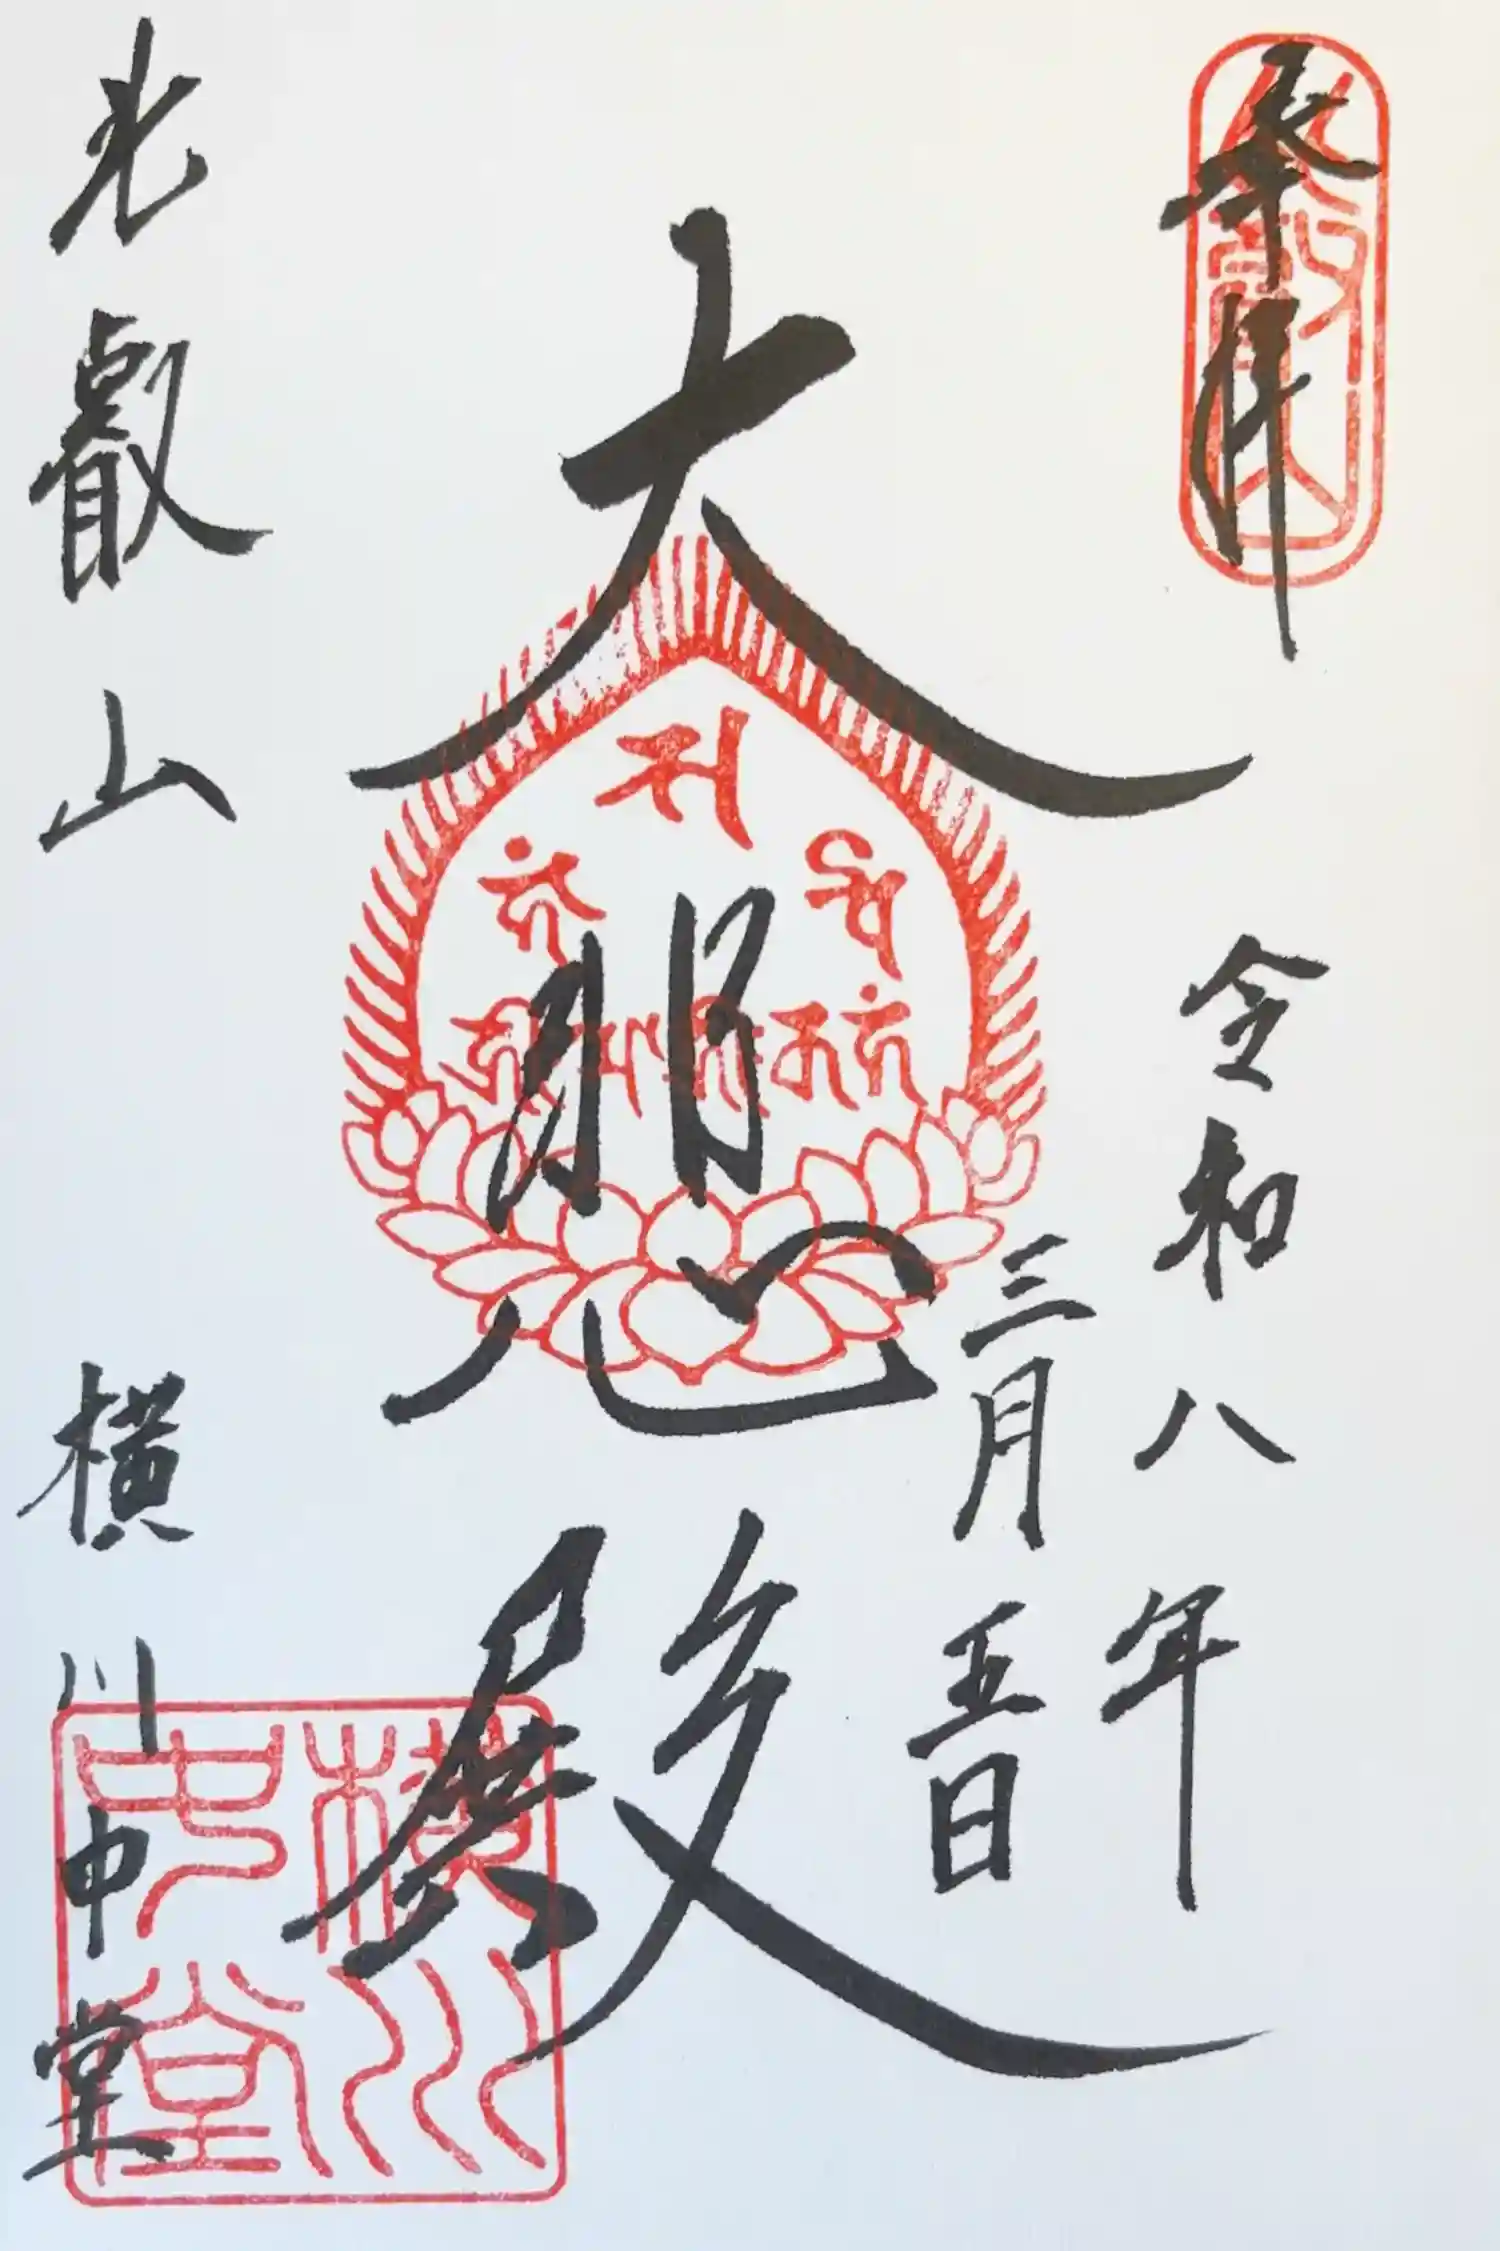 奉拝
令和八年
三月五日
大悲殿
比叡山 横川中堂
横川
中堂